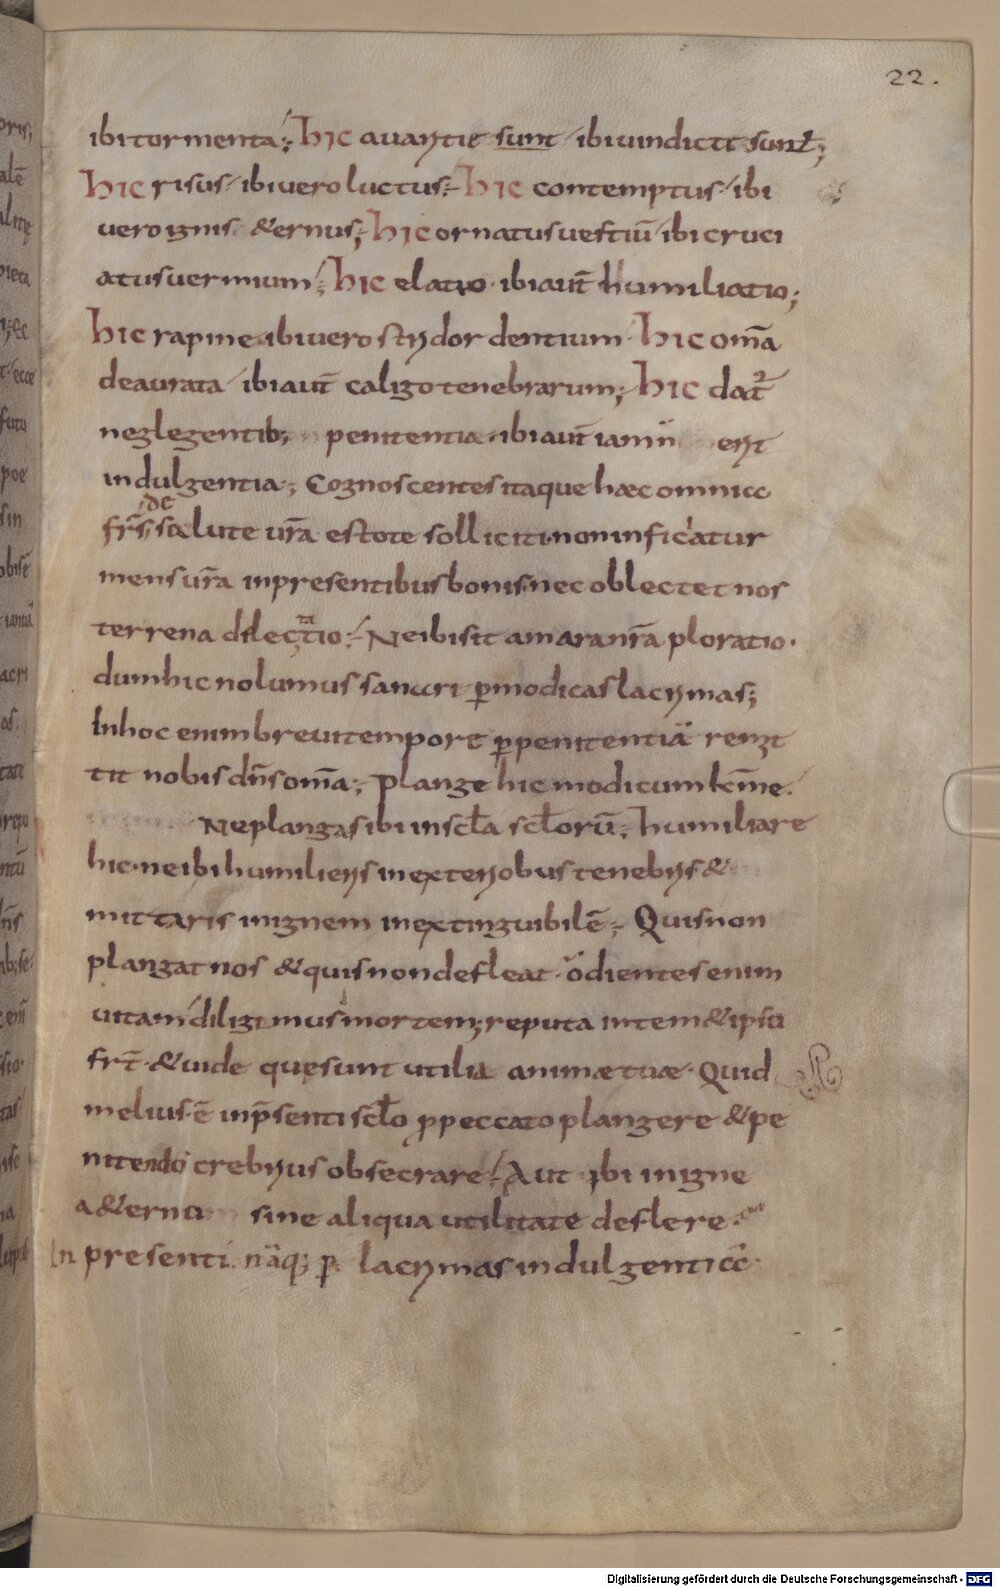 22.
ibi tormenta; hic auaritie sunt / ibi uindicte sunt;
hic risus / ibi uero luctus; hic contemptus / ibi
uero ignis &ernus; hic ornatus uestiū / ibi cruci
atus uermium; hic elatio · ibi aut̄ humiliatio;
hic rapine ibi uero stridor dentium · hic om̄a
deaurata / ibi aut̄ caligo tenebrarum; hic dat̄
neglegentib; penitentia · ibi aut̄ iam n̄ erit
indulgentia; Cognoscentes itaque hæc omnia
fr̄s, de salute ur̄a estote solliciti · non inficatur
mens ur̄a in presentibus bonis · nec oblectet nos
terrena dilectatio; Ne ibi sit amara nr̄a ploratio ·
dum hic nolumus sanari p̄ modicas lacrimas;
In hoc enim breui tempore p̄ penitentiā remit
tit nobis dn̄s om̄a; Plange hic modicum
Ne plangas ibi in sc̄la sc̄lorū; humiliare
hic · ne ibi humilieris in exterioribus tenebris &
mittaris in ignem inextinguibilē; Quis non
plangat nos & quis non defleat · odientes enim
uitam diligimus mortem; reputa in tem&ipso
fr̄t · & uide que sunt utilia animæ tuæ · Quid
melius ē in p̄senti sc̄lo p̄ peccato plangere & pe
nitendo crebrius obsecrare / Aut ibi in igne
a&erno sine aliqua utilitate deflere ·
In presenti nāq; p̄ lacrimas indulgentiā
Digitalisierung gefördert durch die Deutsche Forschungsgemeinschaft - DFG